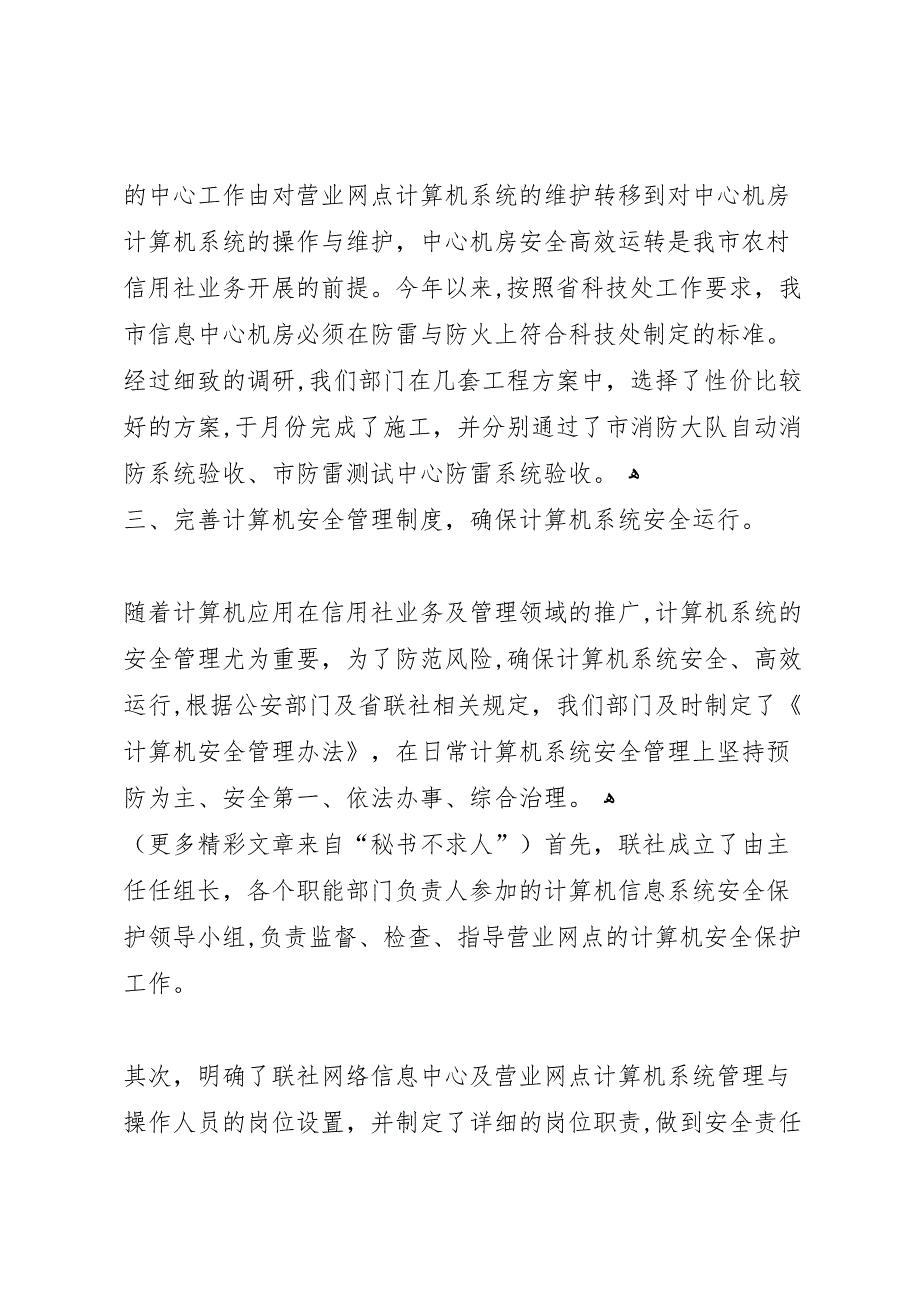 的中心工作由对营业网点计算机系统的维护转移到对中心机房
计算机系统的操作与维护，中心机房安全高效运转是我市农村
信用社业务开展的前提。今年以来,按照省科技处工作要求，我
市信息中心机房必须在防雷与防火上符合科技处制定的标准。
经过细致的调研,我们部门在几套工程方案中，选择了性价比较
好的方案,于月份完成了施工，并分别通过了市消防大队自动消
防系统验收、市防雷测试中心防雷系统验收。 ﻫ
三、完善计算机安全管理制度，确保计算机系统安全运行。
随着计算机应用在信用社业务及管理领域的推广,计算机系统的
安全管理尤为重要，为了防范风险,确保计算机系统安全、高效
运行,根据公安部门及省联社相关规定，我们部门及时制定了《
计算机安全管理办法》，在日常计算机系统安全管理上坚持预
防为主、安全第一、依法办事、综合治理。 ﻫ
（更多精彩文章来自“秘书不求人”）首先，联社成立了由主
任任组长，各个职能部门负责人参加的计算机信息系统安全保
护领导小组,负责监督、检查、指导营业网点的计算机安全保护
工作。
其次，明确了联社网络信息中心及营业网点计算机系统管理与
操作人员的岗位设置，并制定了详细的岗位职责,做到安全责任